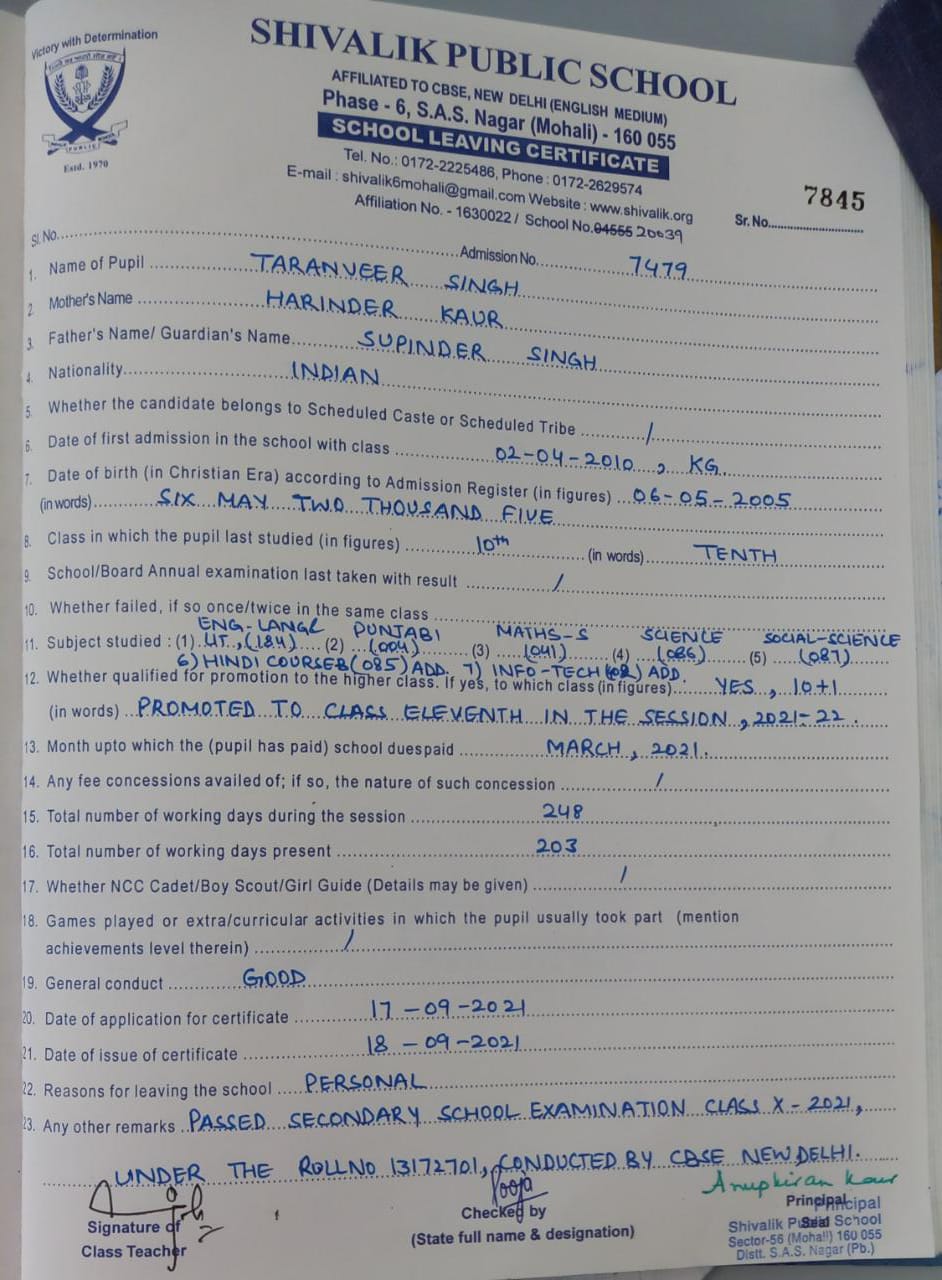 Victory with Determination
SHIVALIK PUBLIC SCHOOL
AFFILIATED TO CBSE, NEW DELHI (ENGLISH MEDIUM)
Phase - 6, S.A.S. Nagar (Mohali) - 160 055
SCHOOL LEAVING CERTIFICATE
Estd. 1970
Tel. No.: 0172-2225486, Phone : 0172-2629574
E-mail : shivalik6mohali@gmail.com Website : www.shivalik.org
Affiliation No. - 1630022 / School No. 04555 20039
Sr. No. 7845
Sl. No. Admission No. 7479
1. Name of Pupil TARANVEER SINGH
2. Mother's Name HARINDER KAUR
3. Father's Name/ Guardian's Name SUPINDER SINGH
4. Nationality INDIAN
5. Whether the candidate belongs to Scheduled Caste or Scheduled Tribe /
6. Date of first admission in the school with class 02-04-2010, KG
7. Date of birth (in Christian Era) according to Admission Register (in figures) 06-05-2005
(in words) SIX MAY TWO THOUSAND FIVE
8. Class in which the pupil last studied (in figures) 10th (in words) TENTH
9. School/Board Annual examination last taken with result /
10. Whether failed, if so once/twice in the same class
ENG-LANG& PUNJABI MATHS-S SCIENCE SOCIAL-SCIENCE
11. Subject studied : (1) LIT., (184) (2) (004) (3) (041) (4) (086) (5) (087)
6) HINDI COURSEB (085) ADD. 7) INFO-TECH (402) ADD.
12. Whether qualified for promotion to the higher class. If yes, to which class (in figures) YES, 10+1
(in words) PROMOTED TO CLASS ELEVENTH IN THE SESSION, 2021-22.
13. Month upto which the (pupil has paid) school duespaid MARCH, 2021.
14. Any fee concessions availed of; if so, the nature of such concession /
15. Total number of working days during the session 248
16. Total number of working days present 203
17. Whether NCC Cadet/Boy Scout/Girl Guide (Details may be given) /
18. Games played or extra/curricular activities in which the pupil usually took part (mention
achievements level therein) /
19. General conduct GOOD
20. Date of application for certificate 17-09-2021
21. Date of issue of certificate 18-09-2021
22. Reasons for leaving the school PERSONAL
23. Any other remarks PASSED SECONDARY SCHOOL EXAMINATION CLASS X-2021,
UNDER THE ROLLNO 13172701, CONDUCTED BY CBSE NEW DELHI.
Pooja
Anupkiran Kaur
Signature of
Class Teacher
Checked by
(State full name & designation)
Principal
Seal
Principal
Shivalik Public School
Sector-56 (Mohali) 160 055
Distt. S.A.S. Nagar (Pb.)